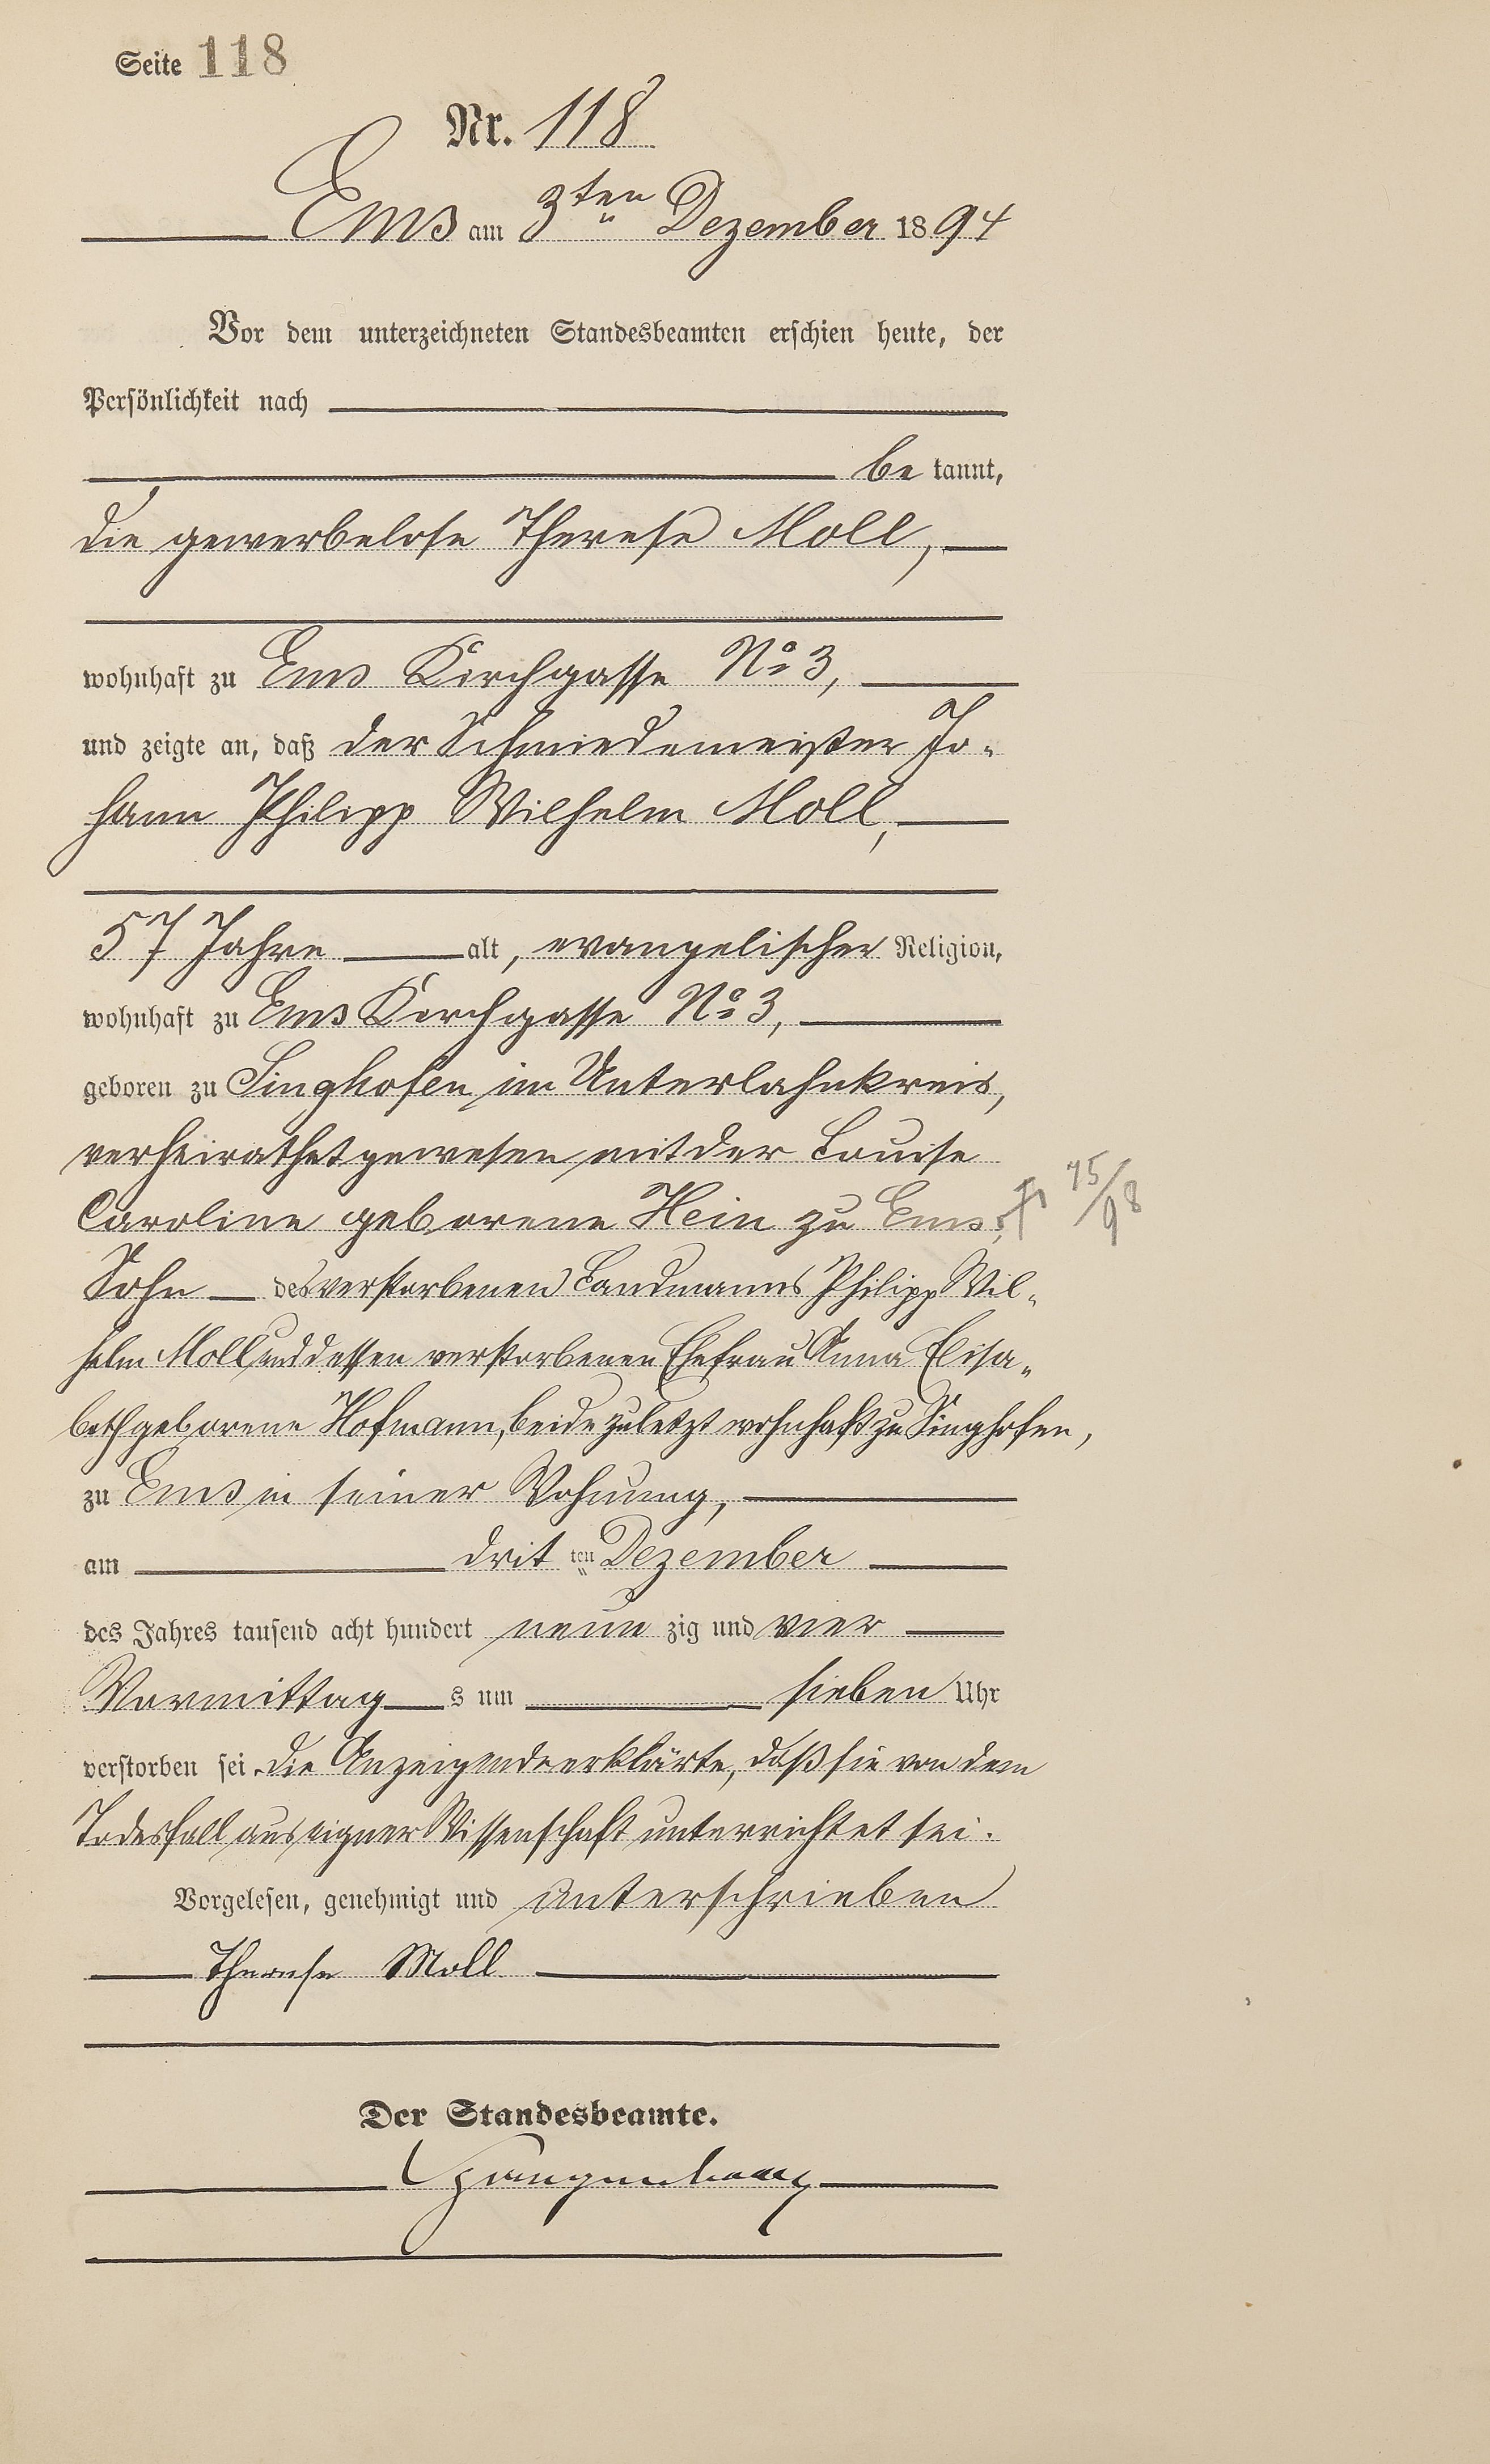 Seite 118
Nr. 118
Ems am 3ten Dezember 1894
Vor dem unterzeichneten Standesbeamten erschien heute, der
Persönlichkeit nach
be kannt,
die gewerbelose Therese Moll,
wohnhaft zu Ems Kirchgasse No 3,
und zeigte an, daß der Schmiedemeister Jo-
hann Philipp Wilhelm Moll,
57 Jahre alt, evangelischer Religion,
wohnhaft zu Ems Kirchgasse No 3,
geboren zu Singhofen im Unterlahnkreis,
verheirathet gewesen mit der Louise
Caroline geborene Hein zu Ems, † 75/98
Sohn des verstorbenen Landmanns Philipp Wil-
helm Moll und dessen verstorbenen Ehefrau Anna Elisa-
beth geborene Hofmann, beide zuletzt wohnhaft zu Singhofen,
zu Ems in seiner Wohnung,
am drit ten Dezember
des Jahres tausend acht hundert neun zig und vier
Vormittag s um sieben Uhr
verstorben sei. Die Anzeigende erklärte, daß sie von dem
Todesfall aus eigner Wissenschaft unterrichtet sei.
Vorgelesen, genehmigt und unterschrieben
Therese Moll
Der Standesbeamte.